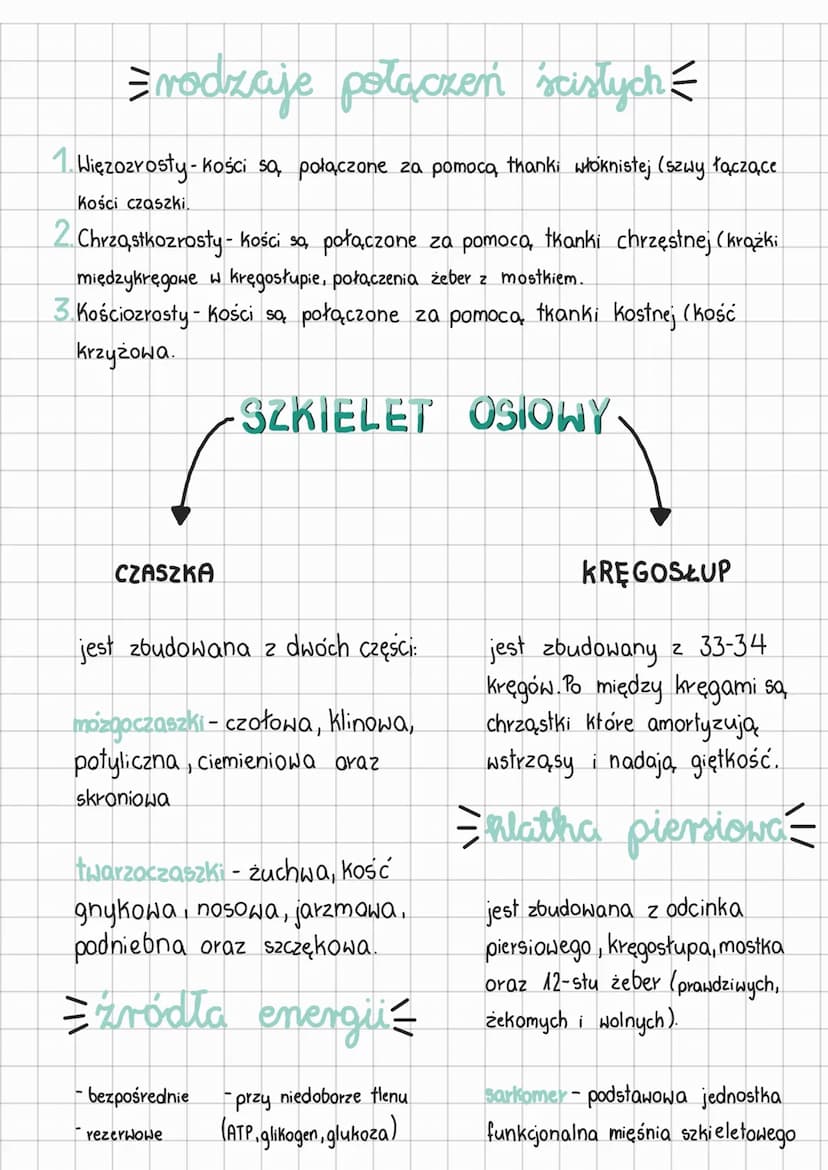 rodzaje połączeń ścisłych
1. Więzozrosty - kości są połączone za pomocą tkanki włóknistej (szwy łączące
kości czaszki.
2. Chrząstkozrosty - kości są połączone za pomocą tkanki chrzęstnej (krążki
międzykręgowe w kręgosłupie, połączenia żeber z mostkiem.
3. Kościozrosty - kości są połączone za pomocą tkanki kostnej (kość
krzyżowa.
SZKIELET OSIOWY
CZASZKA
jest zbudowana z dwóch części:
mózgoczaszki - czołowa, klinowa,
potyliczna, ciemieniowa oraz
skroniowa
twarzoczaszki - żuchwa, kość
gnykowa, nosowa, jarzmowa,
podniebna oraz szczękowa.
źródła energii
- bezpośrednie
- rezerwowe
- przy niedoborze tlenu
(ATP, glikogen, glukoza)
KRĘGOSŁUP
jest zbudowany z 33-34
kręgów. Po między kręgami są
chrząstki które amortyzują
wstrząsy i nadają giętkość.
klatka piersiowa
jest zbudowana z odcinka
piersiowego, kręgosłupa, mostka
oraz 12-stu żeber (prawdziwych,
żekomych i wolnych).
sarkomer - podstawowa jednostka
funkcjonalna mięśnia szkieletowego